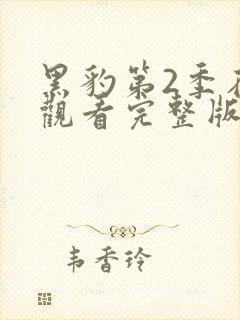 黑豹第2季
觀看完整版
韦香玲